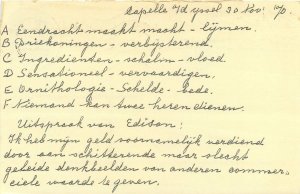 Capelle a/d yssel 30 Nov.
A Eendracht maakt macht - lijmen.
B Driekoningen - verbijsterend.
C Ingrediënten - schalm - vloed.
D Sensationeel - vervaardigen.
E Ornithologie - Schelde - bede.
F Niemand kan twee heren dienen.
Uitspraak van Edison:
Ik heb mijn geld voornamelijk verdiend
door aan schitterende maar slecht
geleide denkbeelden van anderen commer-
ciele waarde te geven.